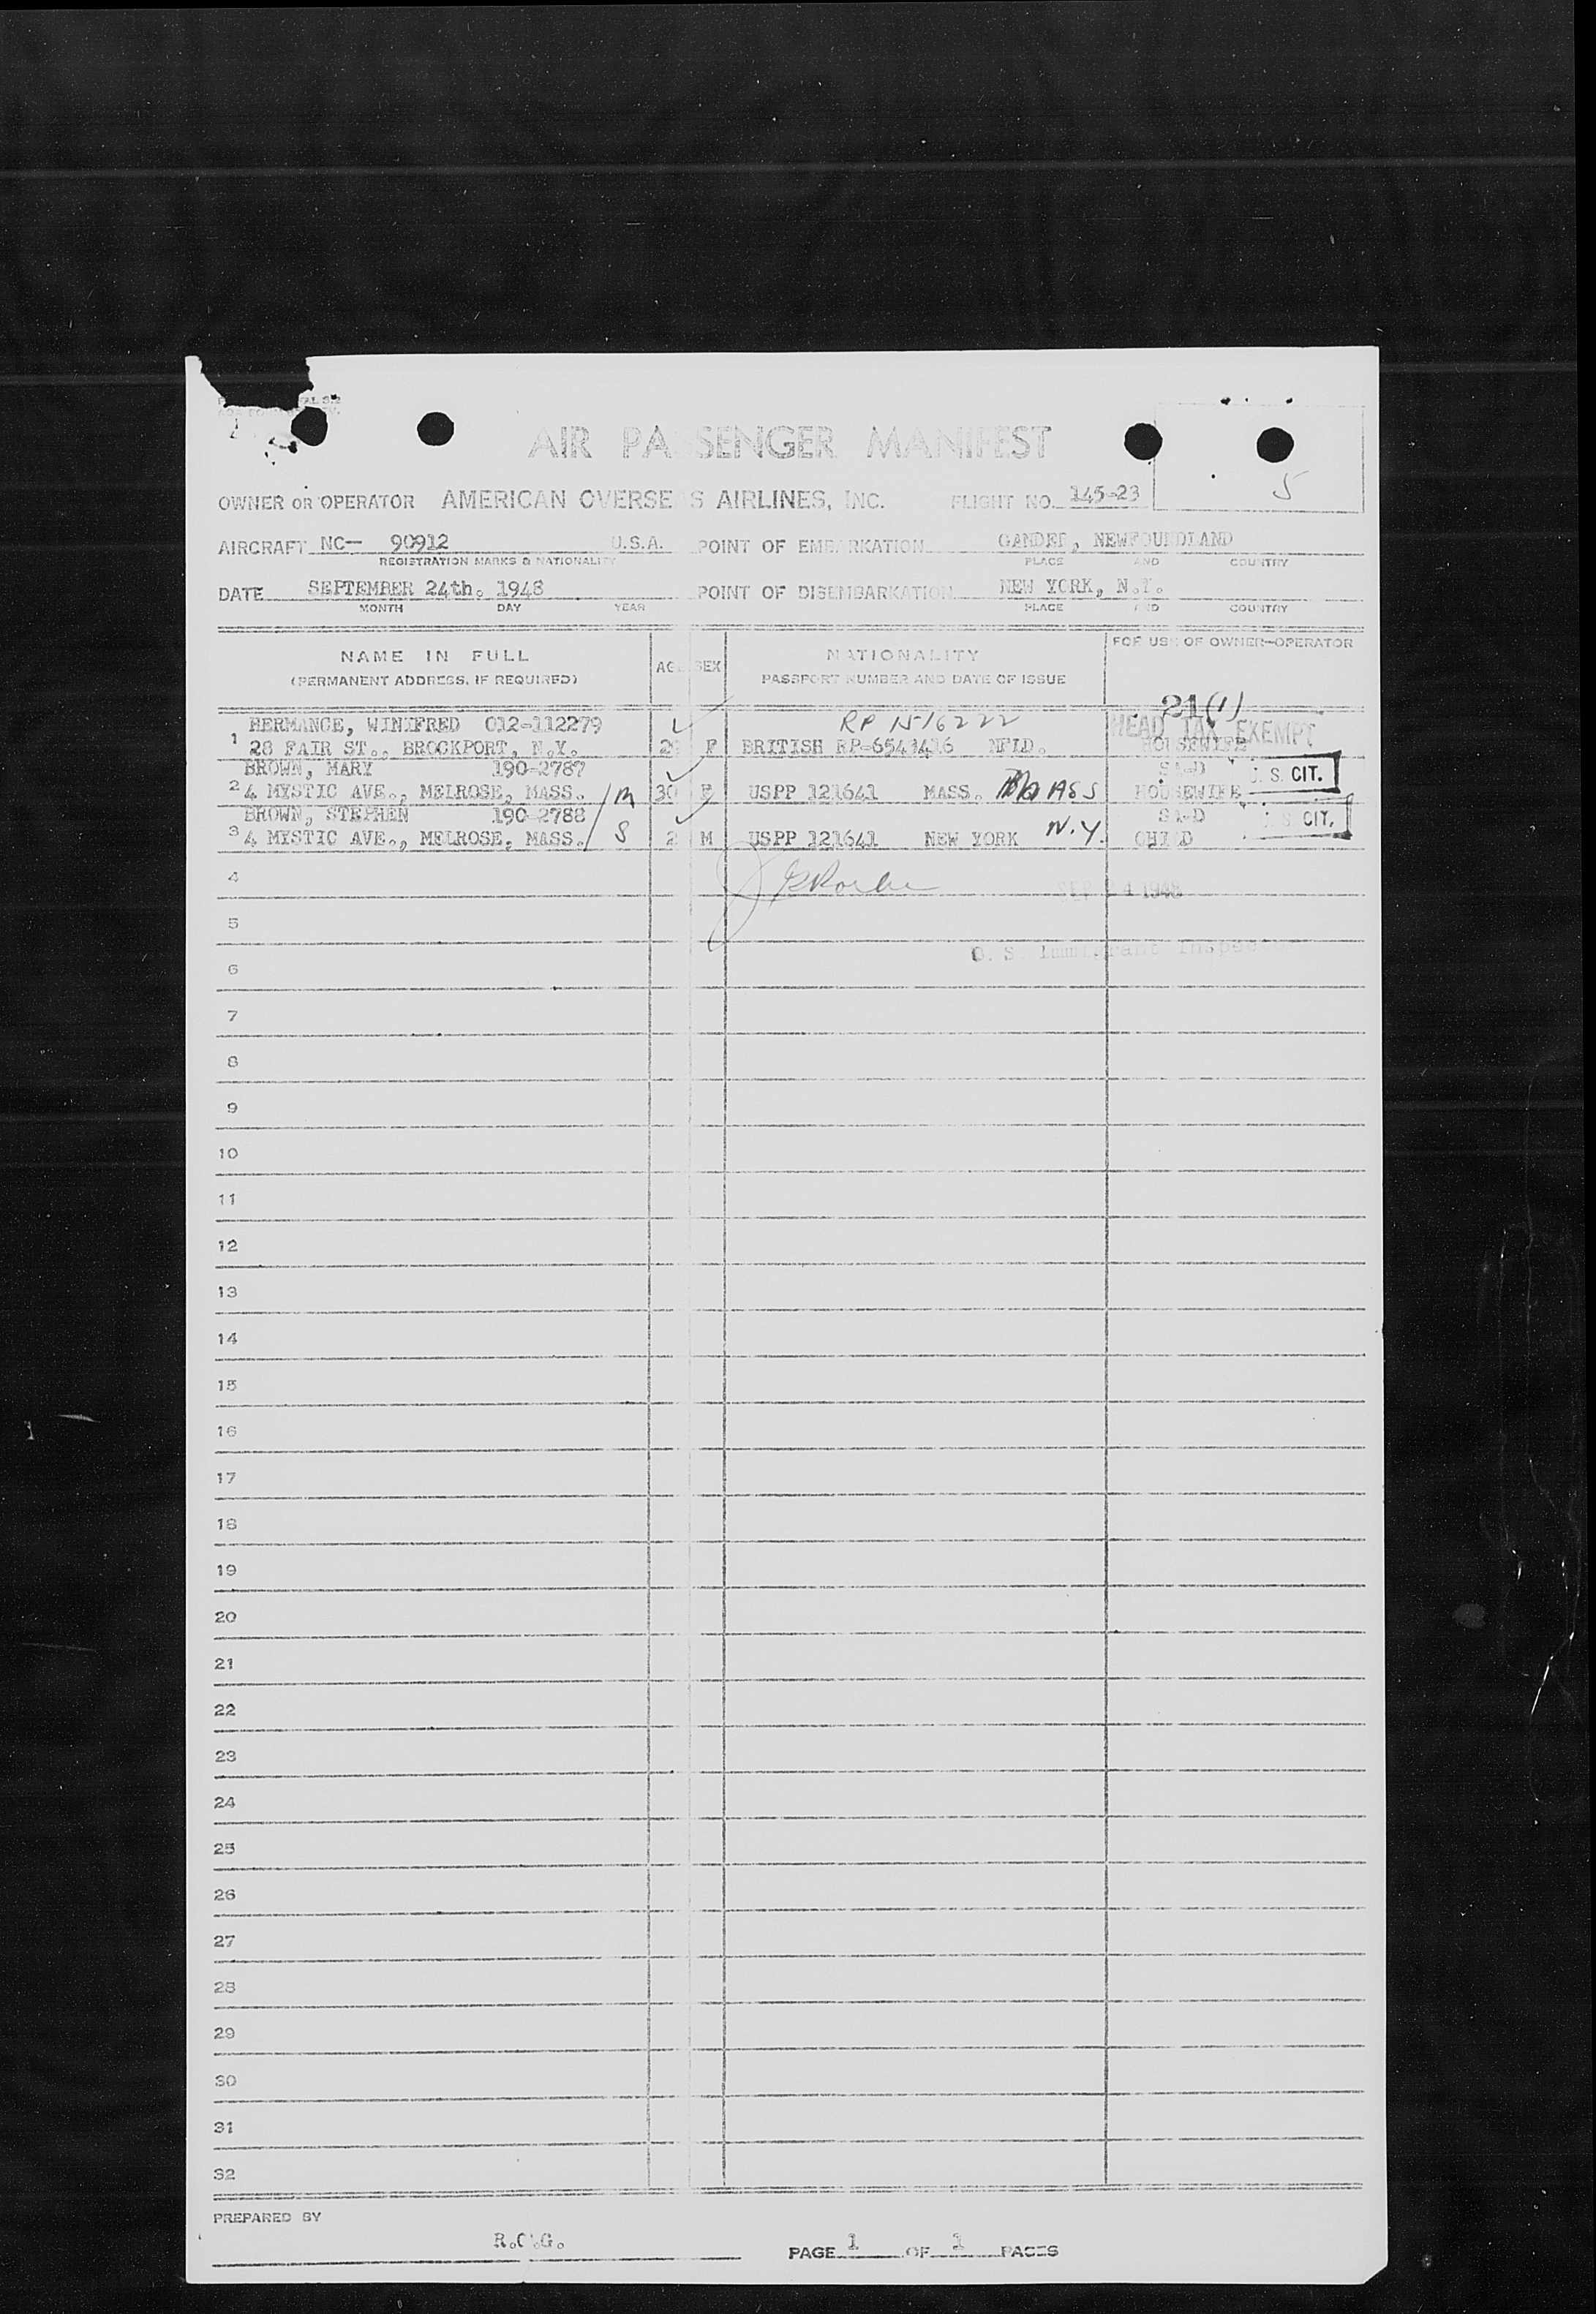 AIR PA SENGER MANIFEST
5
OWNER OR OPERATOR AMERICAN OVERSE S AIRLINES, INC. FLIGHT NO. 145-23
AIRCRAFT NC- 90912 U.S.A. POINT OF EMBARKATION GANDER, NEWFOUNDLAND
REGISTRATION MARKS & NATIONALITY PLACE AND COUNTRY
DATE SEPTEMBER 24th. 1948 POINT OF DISEMBARKATION NEW YORK, N.Y.
MONTH DAY YEAR PLACE AND COUNTRY
NAME IN FULL
(PERMANENT ADDRESS, IF REQUIRED)
AGE SEX
NATIONALITY
PASSPORT NUMBER AND DATE OF ISSUE
FOR USE OF OWNER-OPERATOR
21(1)
HERMANCE, WINIFRED 012-112279 RP 1516222 HEAD TAX EXEMPT
1 28 FAIR ST., BROCKPORT, N.Y. F BRITISH RP-6541416 NFLD. HOUSEWIFE
BROWN, MARY 190-2787 U.S. CIT.
2 4 MYSTIC AVE., MELROSE, MASS. M 30 F USPP 121641 MASS. MASS HOUSEWIFE
BROWN, STEPHEN 190-2788 U.S. CIT.
3 4 MYSTIC AVE., MELROSE, MASS. S 2 M USPP 121641 NEW YORK N.Y. CHILD
4 SEP 24 1948
5
U. S. Immigrant Inspector
6
7
8
9
10
11
12
13
14
15
16
17
18
19
20
21
22
23
24
25
26
27
28
29
30
31
32
PREPARED BY
R.C.G. PAGE 1 OF 1 PAGES